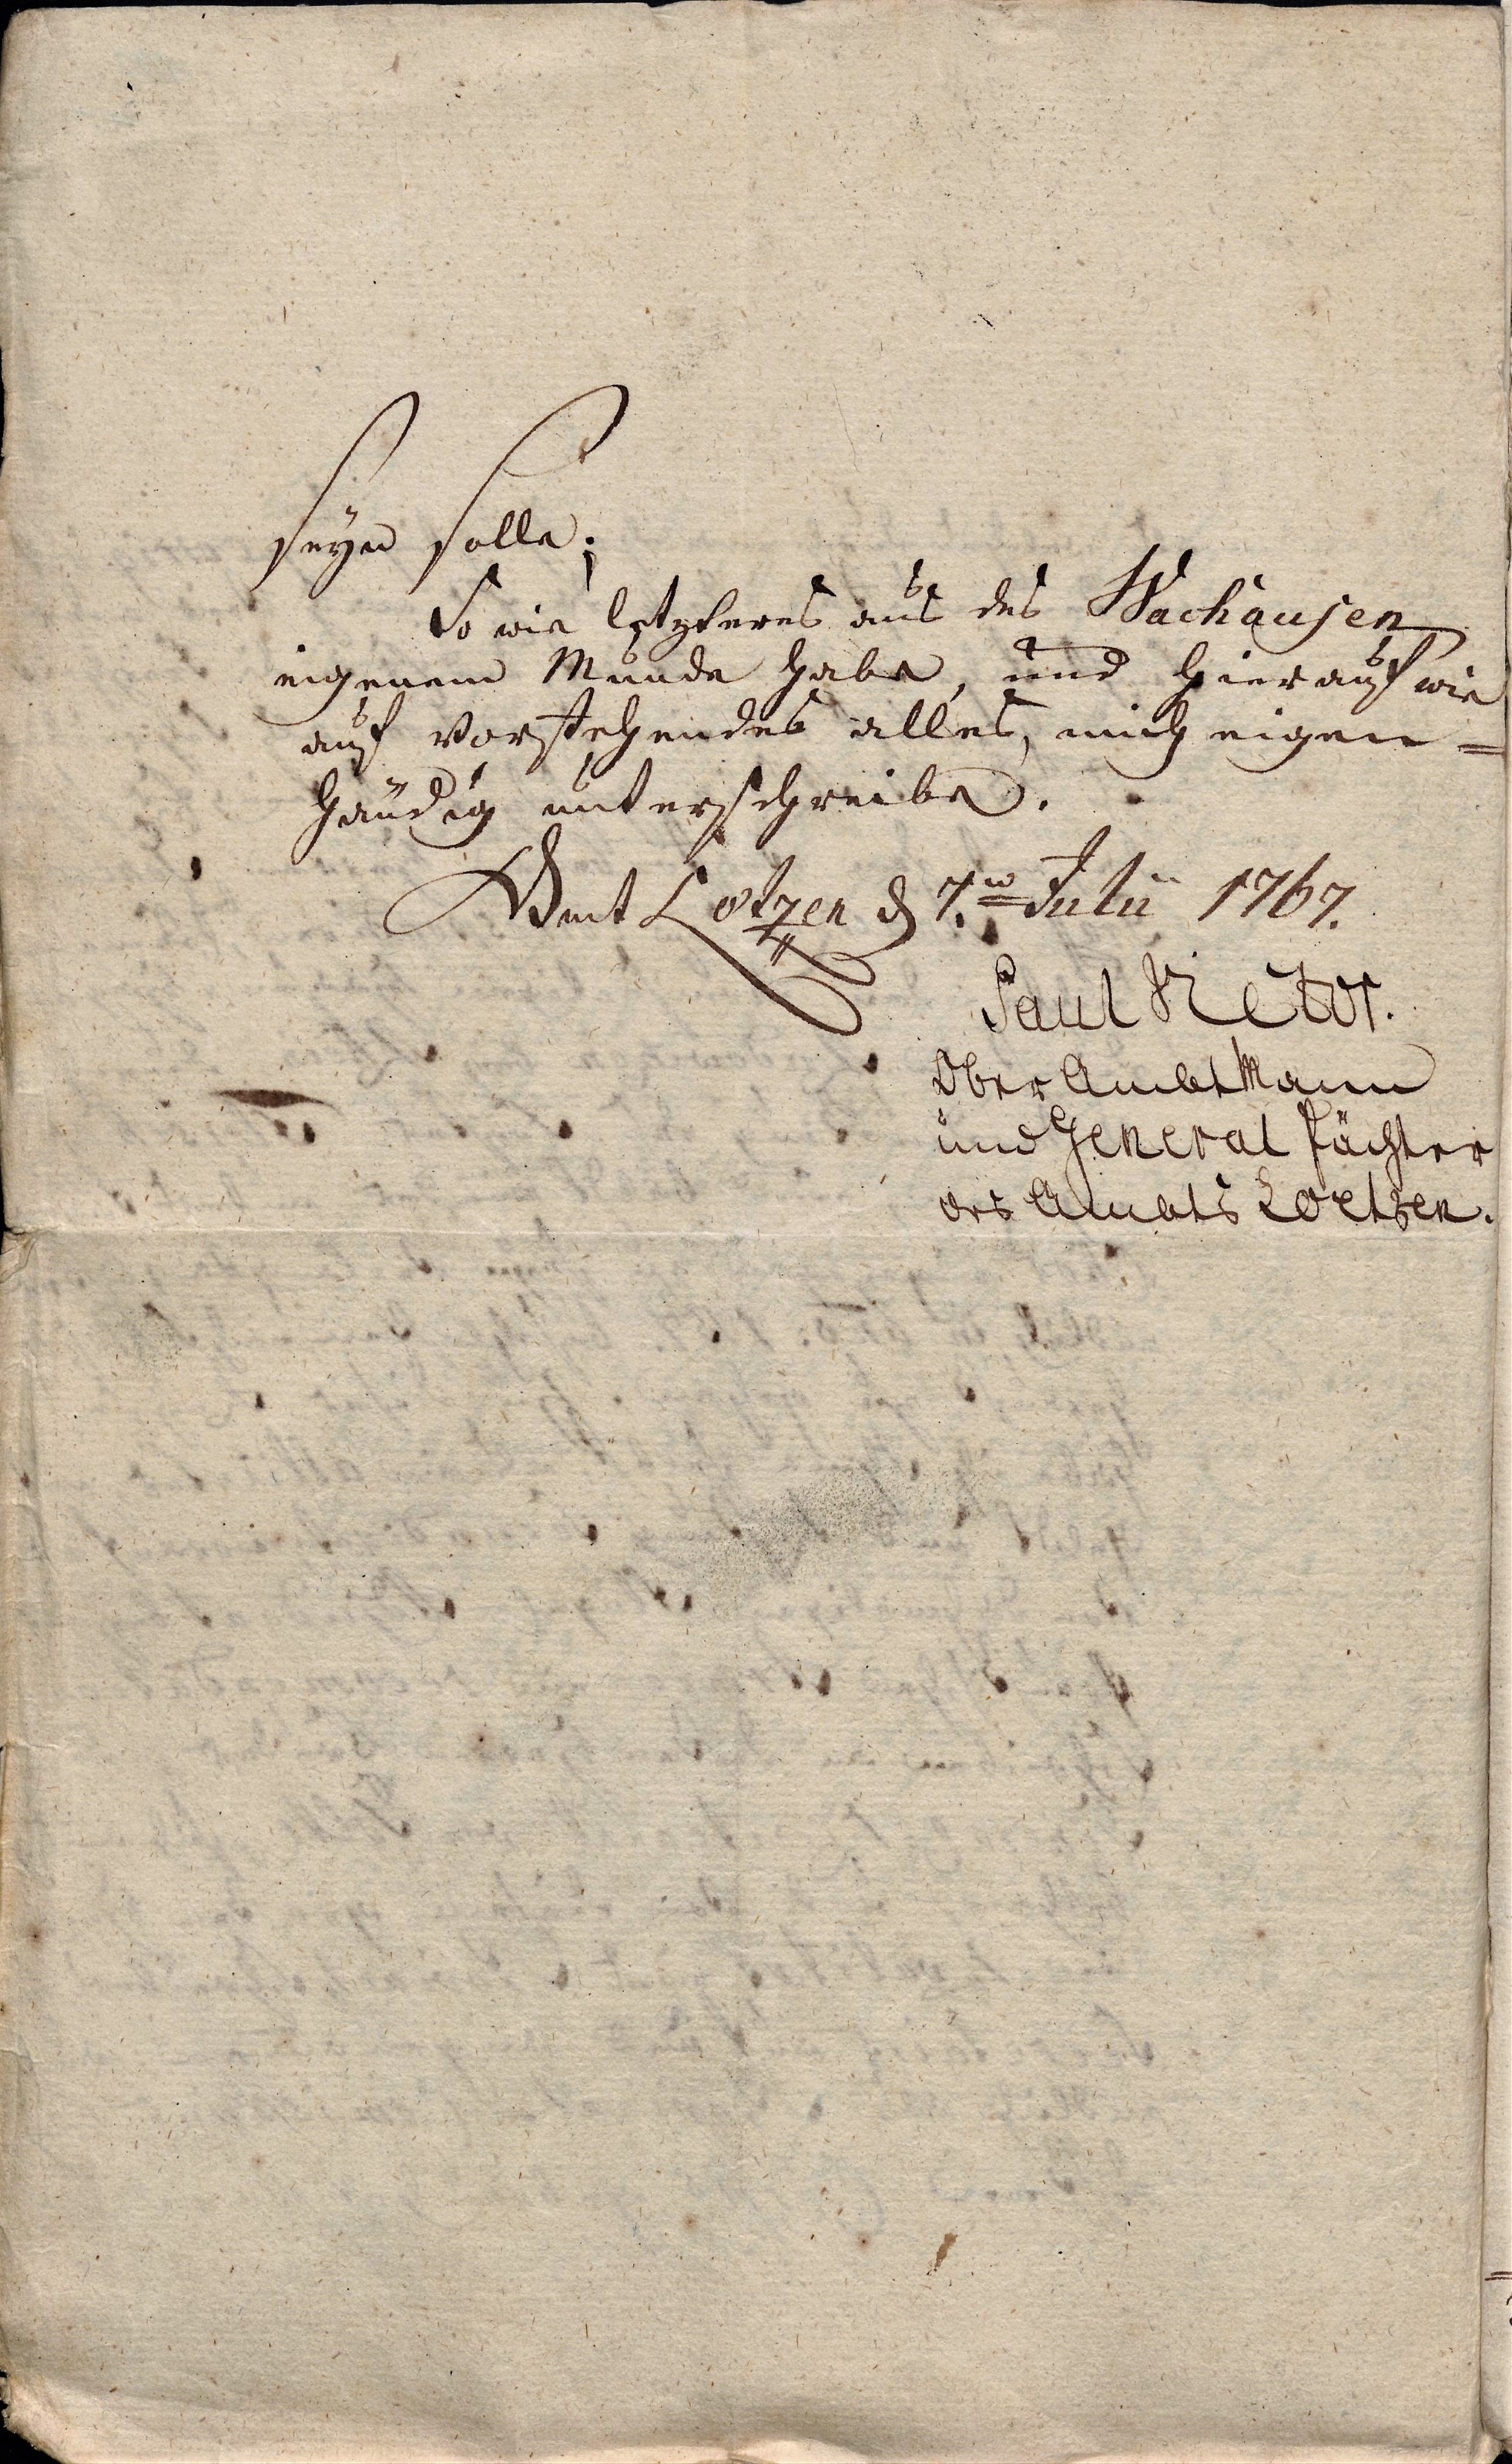 seyn solle;
So wie letzteres aus des Wachausen
eigenem Munde habe, und hierauf wie
auf vorstehendes alles, mich eigen=
händig unterschreibe.
Amt Lötzen d 7.ten Julii 1767.
Paul
Ober Ambtmann
und General Pächter
des Ambts Loetzen.